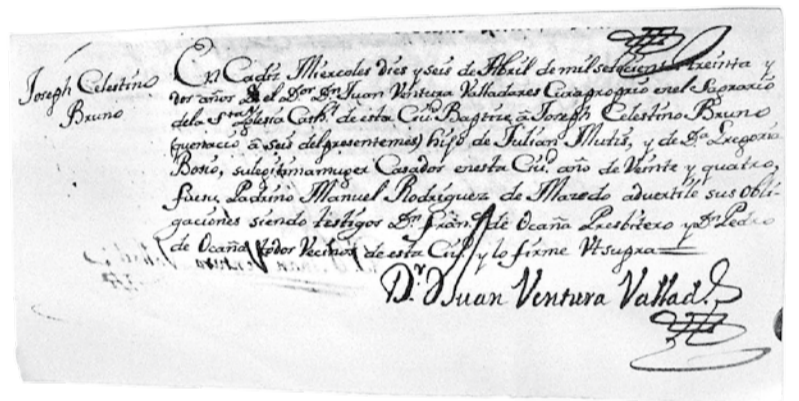 Joseph Celestino
Bruno
En Cadiz Miercoles dies y seis de Abril de mil setecientos treinta y
dos años Yo el D.or D.n Juan Ventura Valladares Cura proprio en el Sagrario
de la S.ta Iglesia Cath.l de esta Ciu.d Baptize à Joseph Celestino Bruno
(que nacio à seis del presente mes) hijo de Julian Mutis, y de D.a Gregoria
Bosio, su legitima muger Casados en esta Ciu.d año de Veinte y quatro,
fue su Padrino Manuel Rodriguez de
advertile sus Obli-
gaciones siendo testigos D.n Fran.co de Ocaña Presbitero y D.n Pedro
de Ocaña todos Vecinos de esta Ciu.d y lo firme Vt supra
D.r D. Juan Ventura Vallad.s